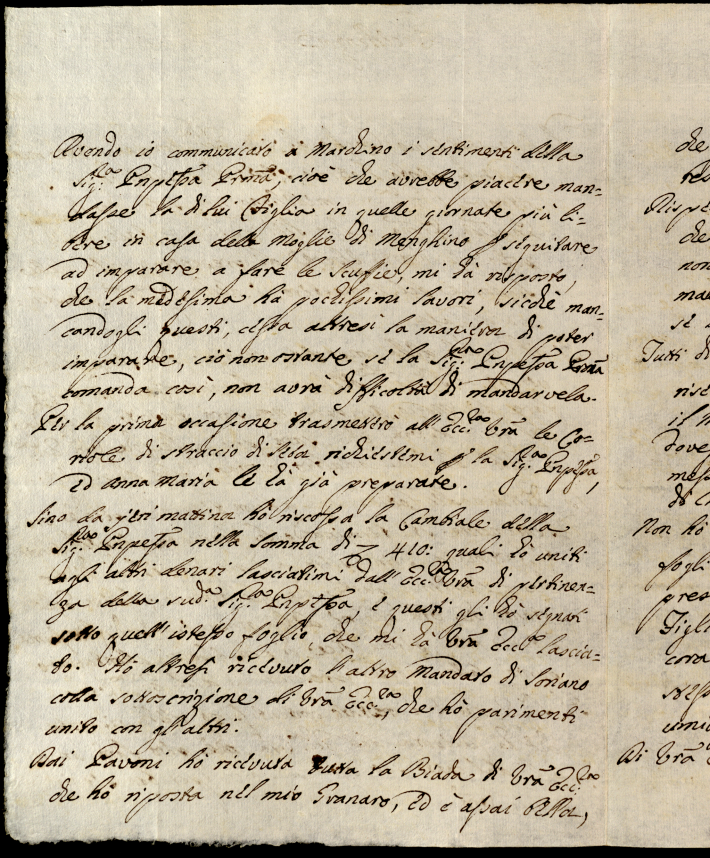 Avendo io communicato a Marchino i sentimenti della
Sig.ra Pnpessa Prima, cioè che avrebbe piacere man=
dasse la di lui Figlia in quelle giornate più li=
bere in casa della Moglie di Menghino p seguitare
ad imparare a fare le Scuffie, mi hà risposto,
che la medesima hà pochissimi lavori, sicchè man=
candogli questi, cessa altresi la maniera di poter
imparare, ciò non ostante se la Sig.ra Pnpessa Prima
comanda così, non avrà difficoltà di mandarvela.
Per la prima occasione trasmetterò all' Ecc.za Vrā le Co=
riole di straccio di seta richiestemi p la Sig.ra Pnpessa,
ed Anna Maria le hà già preparate.
Sino da jeri mattina hò riscossa la Cambiale della
Sig.ra Pnpessa nella somma di 410: quali hò uniti
agli altri denari lasciatimi dall' Ecc.za Vrā di pertinen=
za della sud.a Sig.ra Pnpessa, e questi gli hò segnati
sotto quell' istesso foglio, che mi hà Vrā Ecc.za lascia=
to. Hò altresi ricevuto l'altro Mandato di Soriano
colla sottoscrizione di Vrā Ecc.za, che hò parimenti
unito con gl'altri.
Dai Pavoni hò ricevuta tutta la Biada di Vrā Ecc.za
che hò riposta nel mio Granaro, ed è assai bella,
che
Rispe
che
non
mae
se
Tutti di
rise
il m
dove
mes
di
Non hò
fogli
pres
Figli
cora
stess
umi
Di Vrā